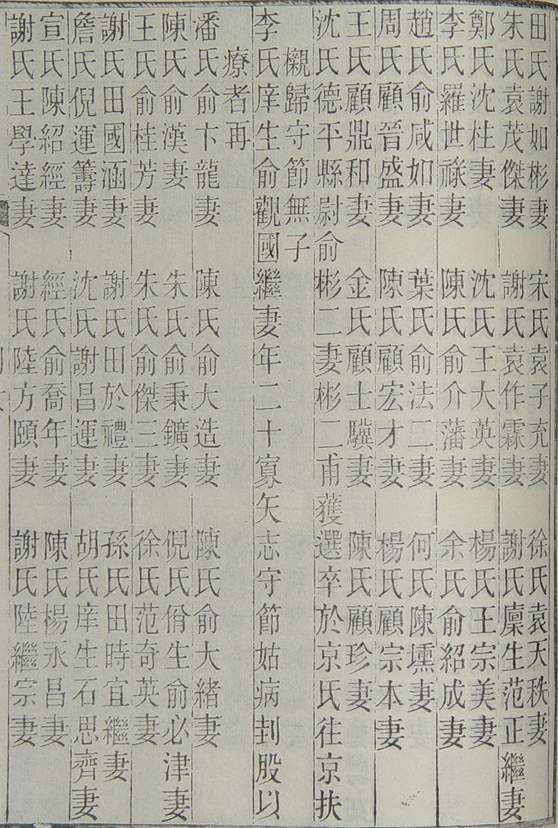 田氏謝如彬妻　宋氏袁子充妻　徐氏袁天秩妻
朱氏袁茂傑妻　謝氏袁作霖妻　謝氏廩生范正繼妻
鄭氏沈柱妻　沈氏王大英妻　楊氏王宗美妻
李氏羅世祿妻　陳氏俞介藩妻　余氏俞紹成妻
趙氏俞咸如妻　葉氏俞法二妻　何氏陳壎妻
周氏顧晉盛妻　陳氏顧宏才妻　楊氏顧宗本妻
王氏顧鼎和妻　金氏顧士驥妻　陳氏顧珍妻
沈氏德平縣尉俞彬二妻彬二甫獲選卒於京氏往京扶
櫬歸守節無子
李氏庠生俞觀國繼妻年二十寡矢志守節姑病刲股以
療者再
潘氏俞卞龍妻　陳氏俞大造妻　陳氏俞大緒妻
陳氏俞漢妻　朱氏俞秉鑛妻　倪氏佾生俞必津妻
王氏俞桂芳妻　朱氏俞傑三妻　徐氏范奇英妻
謝氏田國涵妻　謝氏田於禮妻　孫氏田時宜繼妻
詹氏倪運籌妻　沈氏謝昌運妻　胡氏庠生石思齊妻
宣氏陳紹經妻　經氏俞喬年妻　陳氏楊永昌妻
謝氏王學達妻　謝氏陸方頤妻　謝氏陸繼宗妻